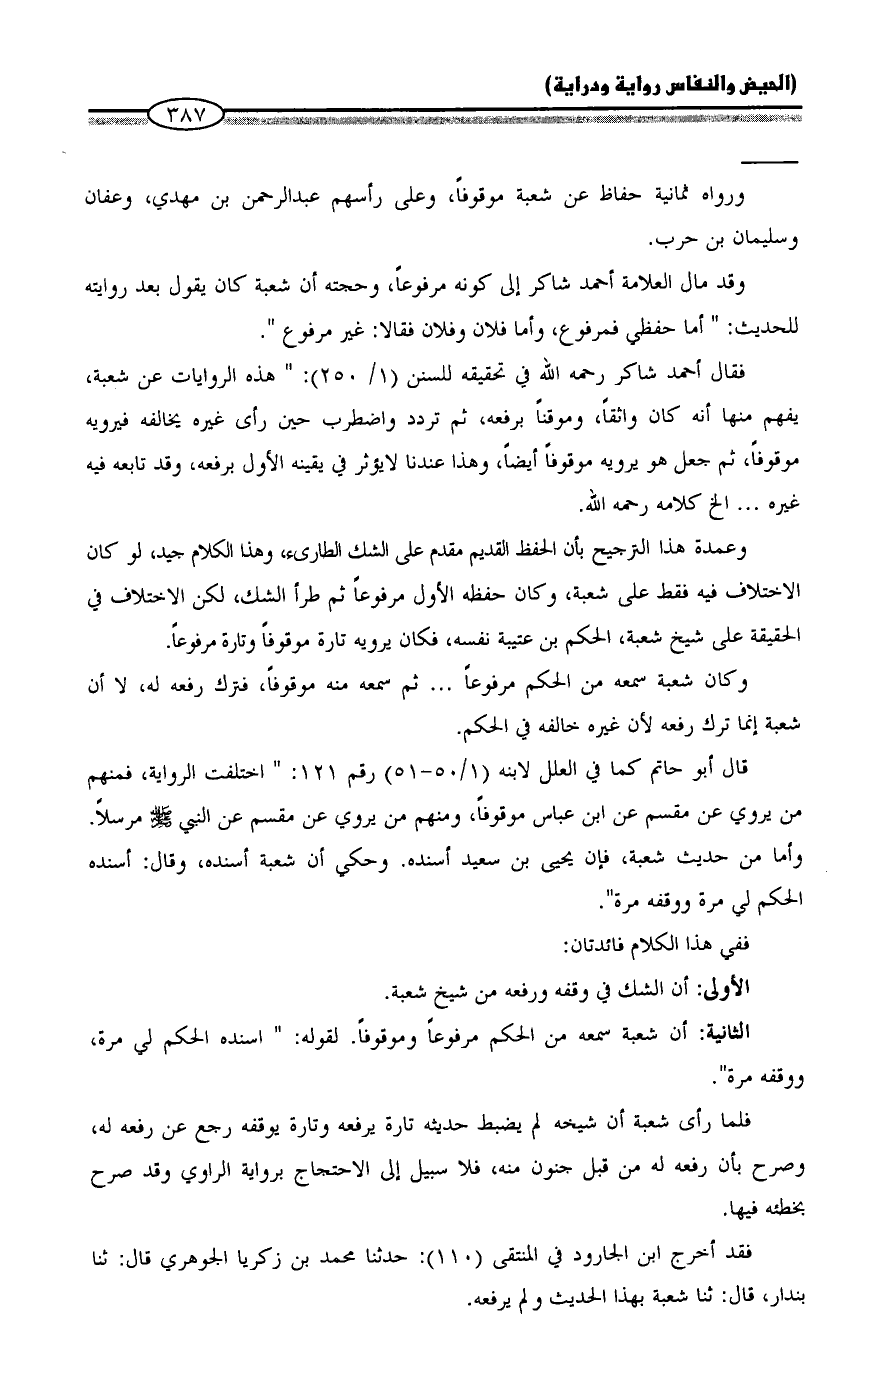 (الحيض والنفاس رواية ودراية)
٣٨٧
ورواه ثمانية حفاظ عن شعبة موقوفاً، وعلى رأسهم عبدالرحمن بن مهدي، وعفان
وسليمان بن حرب.
وقد مال العلامة أحمد شاكر إلى كونه مرفوعاً، وحجته أن شعبة كان يقول بعد روايته
للحديث: " أما حفظي فمرفوع، وأما فلان وفلان فقالا: غير مرفوع ".
فقال أحمد شاكر رحمه الله في تحقيقه للسنن (١/ ٢٥٠): " هذه الروايات عن شعبة،
يفهم منها أنه كان واثقاً، وموقناً برفعه، ثم تردد واضطرب حين رأى غيره يخالفه فيرويه
موقوفاً، ثم جعل هو يرويه موقوفاً أيضاً، وهذا عندنا لايؤثر في يقينه الأول برفعه، وقد تابعه فيه
غيره ... الخ كلامه رحمه الله.
وعمدة هذا الترجيح بأن الحفظ القديم مقدم على الشك الطارىء، وهذا الكلام جيد، لو كان
الاختلاف فيه فقط على شعبة، وكان حفظه الأول مرفوعاً ثم طرأ الشك، لكن الاختلاف في
الحقيقة على شيخ شعبة، الحكم بن عتيبة نفسه، فكان يرويه تارة موقوفاً وتارة مرفوعاً.
وكان شعبة سمعه من الحكم مرفوعاً ... ثم سمعه منه موقوفاً، فترك رفعه له، لا أن
شعبة إنما ترك رفعه لأن غيره خالفه في الحكم.
قال أبو حاتم كما في العلل لابنه (٥٠/١-٥١) رقم ١٢١: " اختلفت الرواية، فمنهم
من يروي عن مقسم عن ابن عباس موقوفاً، ومنهم من يروي عن مقسم عن النبي ﷺ مرسلاً.
وأما من حديث شعبة، فإن يحيى بن سعيد أسنده. وحكي أن شعبة أسنده، وقال: أسنده
الحكم لي مرة ووقفه مرة".
ففي هذا الكلام فائدتان:
الأولى: أن الشك في وقفه ورفعه من شيخ شعبة.
الثانية: أن شعبة سمعه من الحكم مرفوعاً وموقوفاً. لقوله: " اسنده الحكم لي مرة،
ووقفه مرة".
فلما رأى شعبة أن شيخه لم يضبط حديثه تارة يرفعه وتارة يوقفه رجع عن رفعه له،
وصرح بأن رفعه له من قبل جنون منه، فلا سبيل إلى الاحتجاج برواية الراوي وقد صرح
بخطئه فيها.
فقد أخرج ابن الجارود في المنتقى (١١٠): حدثنا محمد بن زكريا الجوهري قال: ثنا
بندار، قال: ثنا شعبة بهذا الحديث و لم يرفعه.